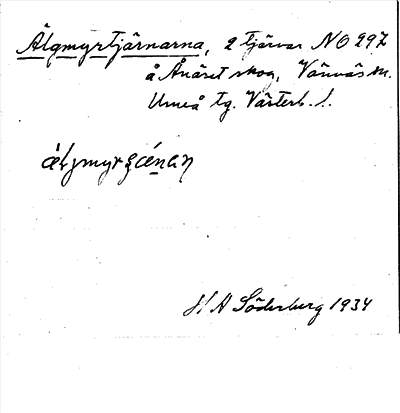 Älgmyrtjärnarna, 2 tjärnar NO 297
å Ånäset skog, Vännäs sn.
Umeå tg. Västerb. l.
H A Söderberg 1934